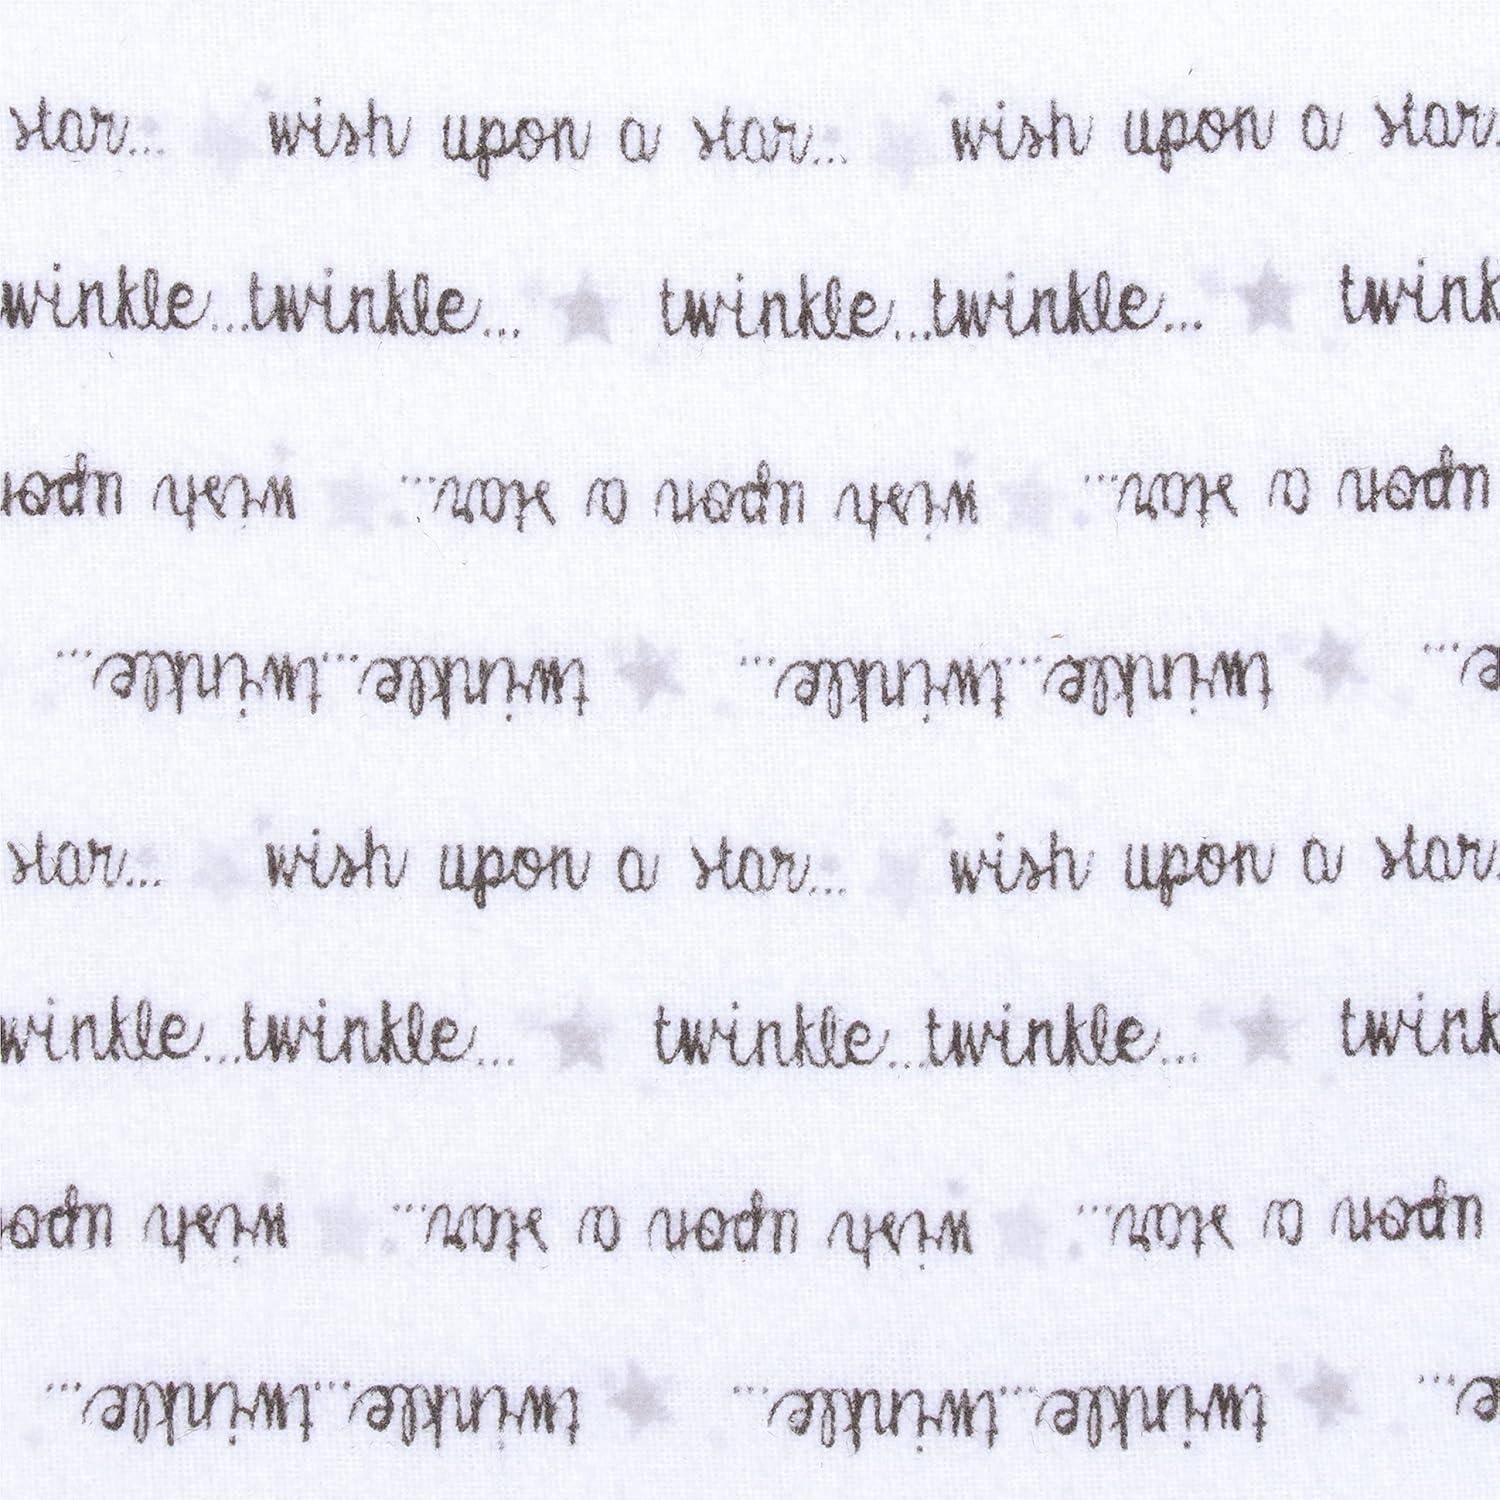 star... wish upon a star... wish upon a star.
winkle...twinkle... twinkle...twinkle... twink
upon a star... wish upon a star... wish upon
e... twinkle...twinkle... twinkle...twinkle...
star... wish upon a star... wish upon a star.
winkle...twinkle... twinkle...twinkle... twink
upon a star... wish upon a star... wish upon
e... twinkle...twinkle... twinkle...twinkle...